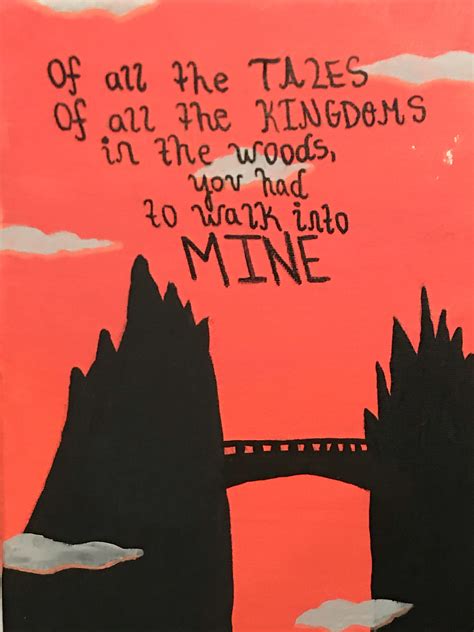 Of all the TALES
Of all the KINGDOMS
in the woods,
you had
to walk into
MINE